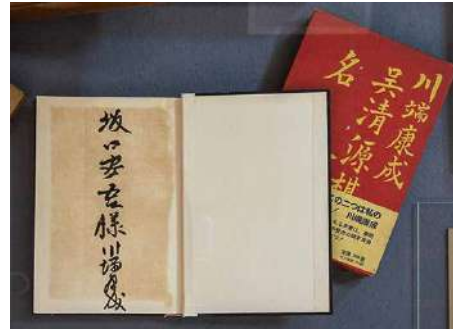 坂口安吾様 川端康成
川端康成
呉清源棋
名
この二つは私の
川端康成